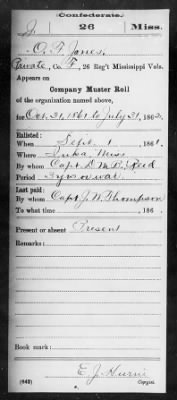 Confederate.
J. 26 Miss.
O. P. Jones,
Private, Co. F, 26 Reg't Mississippi Vols.
Appears on
Company Muster Roll
of the organization named above,
for Oct. 31, 1861 to July 31, 1862.
Enlisted:
When Sept. 1, 1861.
Where Iuka, Miss
By whom Capt. D. M. P. Reed
Period 3 yrs or war.
Last paid:
By whom Capt. J. W. Thompson
To what time , 186 .
Present or absent Present
Remarks:
Book mark:
E. J. Hurni
(642) Copyist.